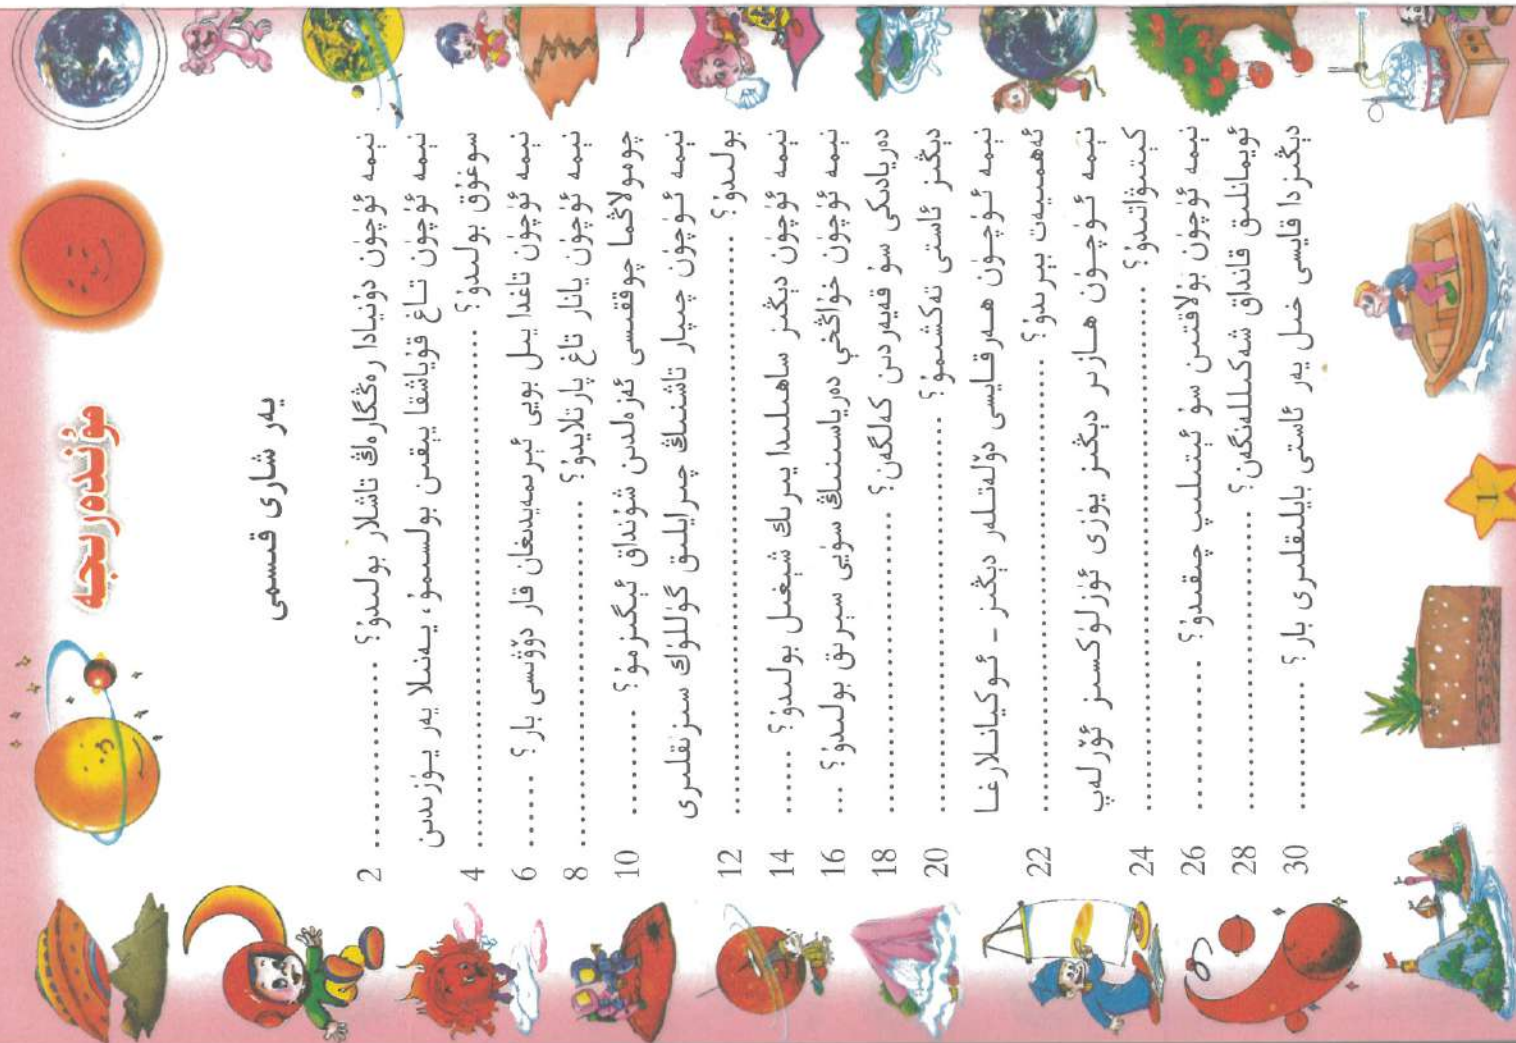 مۇندەرىجە
يەر شارى قىسمى
نېمە ئۈچۈن دۇنيادا رەڭگارەڭ تاشلار بولىدۇ؟ ................ 2
نېمە ئۈچۈن تاغ قۇياشقا يېقىن بولسىمۇ، يەنىلا يەر يۈزىدىن
سوغۇق بولىدۇ؟ ................................................ 4
نېمە ئۈچۈن تاغدا يىل بويى ئېرىمەيدىغان قار دۆۋىسى بار؟ ...... 6
نېمە ئۈچۈن يانار تاغ پارتلايدۇ؟ ............................ 8
چومولاڭما چوققىسى ئەزەلدىن شۇنداق ئېگىزمۇ؟ ......... 10
نېمە ئۈچۈن چىپار تاشنىڭ چىرايلىق گۈللۈك سىزىقلىرى
بولىدۇ؟ ........................................................ 12
نېمە ئۈچۈن دېڭىز ساھىلىدا يىرىك شېغىل بولىدۇ؟ ...... 14
نېمە ئۈچۈن خۇاڭخې دەرياسىنىڭ سۈيى سېرىق بولىدۇ؟ ... 16
دەريادىكى سۇ قەيەردىن كەلگەن؟ ........................... 18
دېڭىز ئاستى تەكشىمۇ؟ ....................................... 20
نېمە ئۈچۈن ھەرقايسى دۆلەتلەر دېڭىز - ئوكيانلارغا
ئەھمىيەت بېرىدۇ؟ .......................................... 22
نېمە ئۈچۈن ھازىر دېڭىز يۈزى ئۈزلۈكسىز ئۆرلەپ
كېتىۋاتىدۇ؟ ................................................... 24
نېمە ئۈچۈن بۇلاقتىن سۇ ئېتىلىپ چىقىدۇ؟ ............... 26
ئويمانلىق قانداق شەكىللەنگەن؟ .............................. 28
دېڭىزدا قايسى خىل يەر ئاستى بايلىقلىرى بار؟ ............ 30
1